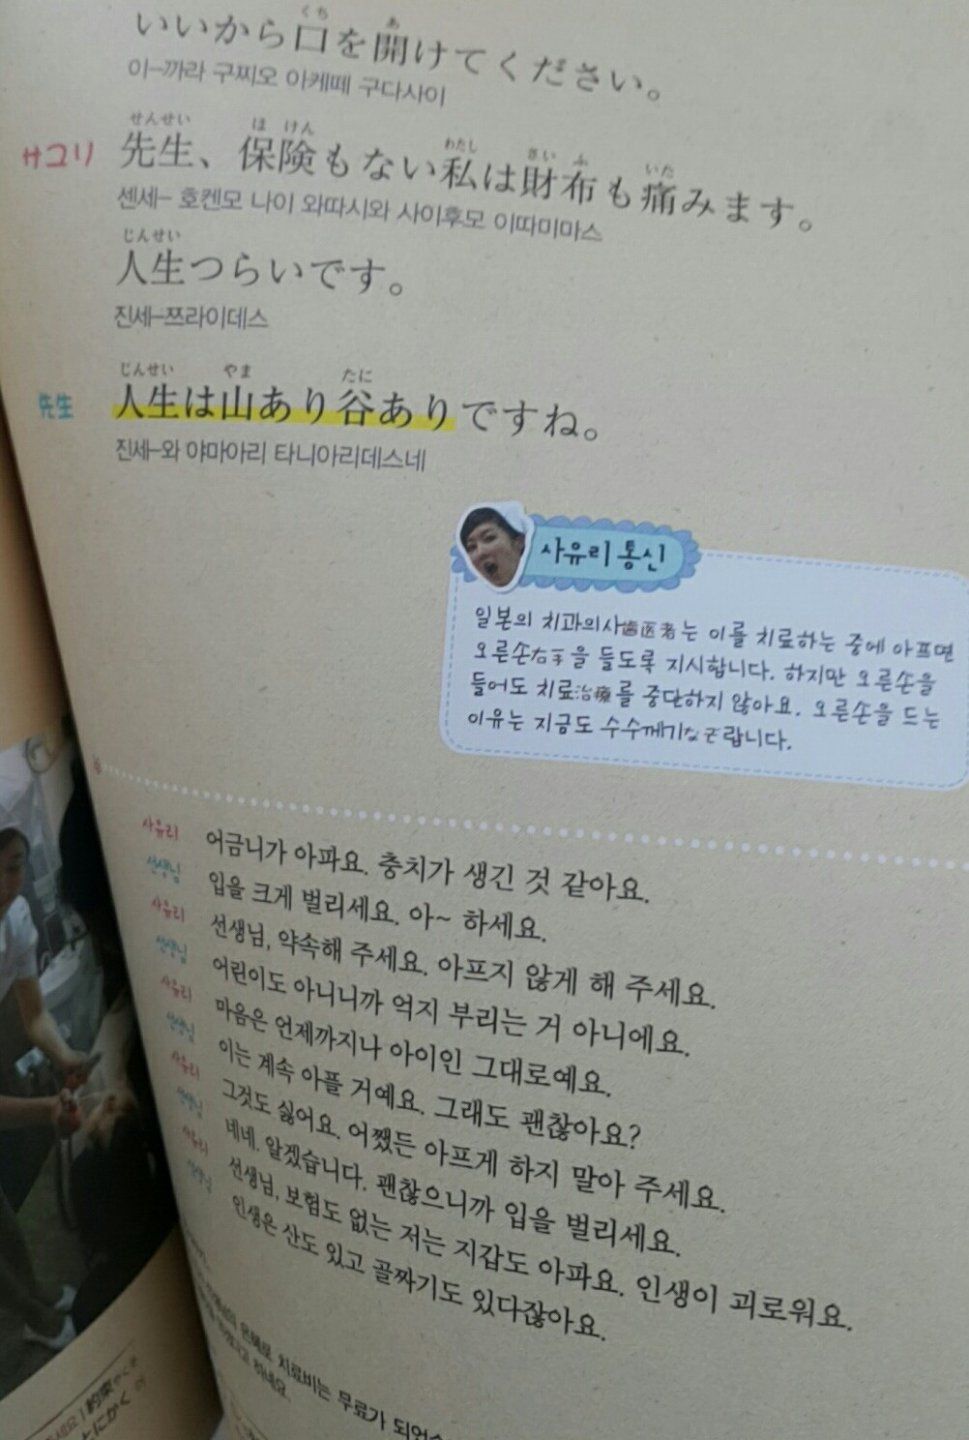 いいから口を開けてください。
이-까라 구찌오 아케떼 구다사이
サユリ 先生、保険もない私は財布も痛みます。
센세- 호켄모 나이 와따시와 사이후모 이따미마스
人生つらいです。
진세-쯔라이데스
先生 人生は山あり谷ありですね。
진세-와 야마아리 타니아리데스네
사유리 통신
일본의 치과의사歯医者는 이를 치료하는 중에 아프면
오른손右手을 들도록 지시합니다. 하지만 오른손을
들어도 치료治療를 중단하지 않아요. 오른손을 드는
이유는 지금도 수수께기なぞ랍니다.
사유리 어금니가 아파요. 충치가 생긴 것 같아요.
선생님 입을 크게 벌리세요. 아~ 하세요.
사유리 선생님, 약속해 주세요. 아프지 않게 해 주세요.
선생님 어린이도 아니니까 억지 부리는 거 아니에요.
사유리 마음은 언제까지나 아이인 그대로예요.
선생님 이는 계속 아플 거예요. 그래도 괜찮아요?
사유리 그것도 싫어요. 어쨌든 아프게 하지 말아 주세요.
선생님 네네. 알겠습니다. 괜찮으니까 입을 벌리세요.
사유리 선생님, 보험도 없는 저는 지갑도 아파요. 인생이 괴로워요.
선생님 인생은 산도 있고 골짜기도 있다잖아요.
치료비는 무료가
하네요.